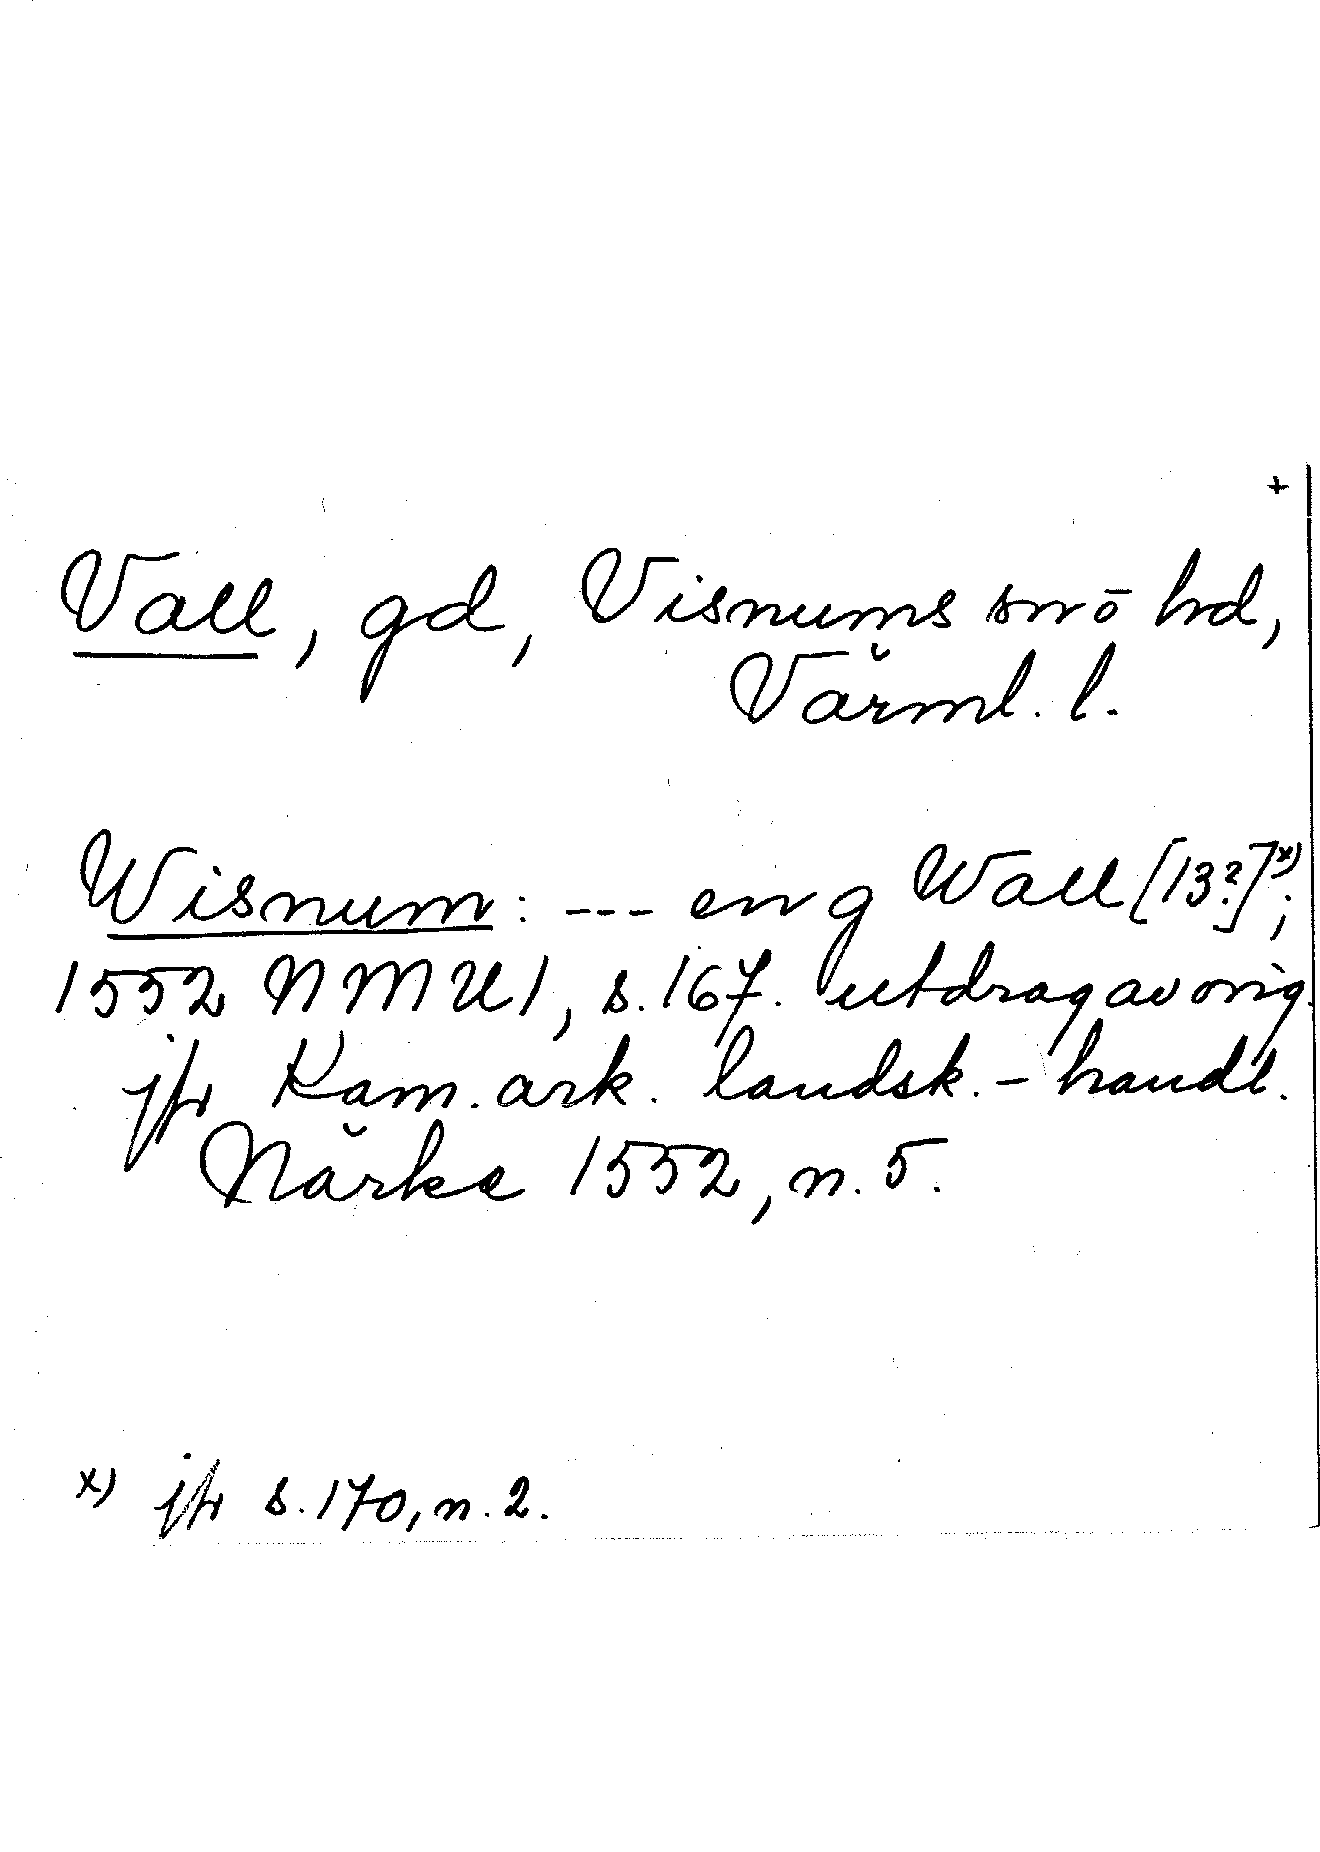 +
Vall, gd, Visnums sn ō hd,
Värml. l.
Wisnum: --- en g Wall [13?]x);
1552 NMU 1, s. 167. utdrag av orig.
jfr Kam. ark. landsk. - handl.
Närke 1552, n. 5.
x) jfr s. 170, n. 2.